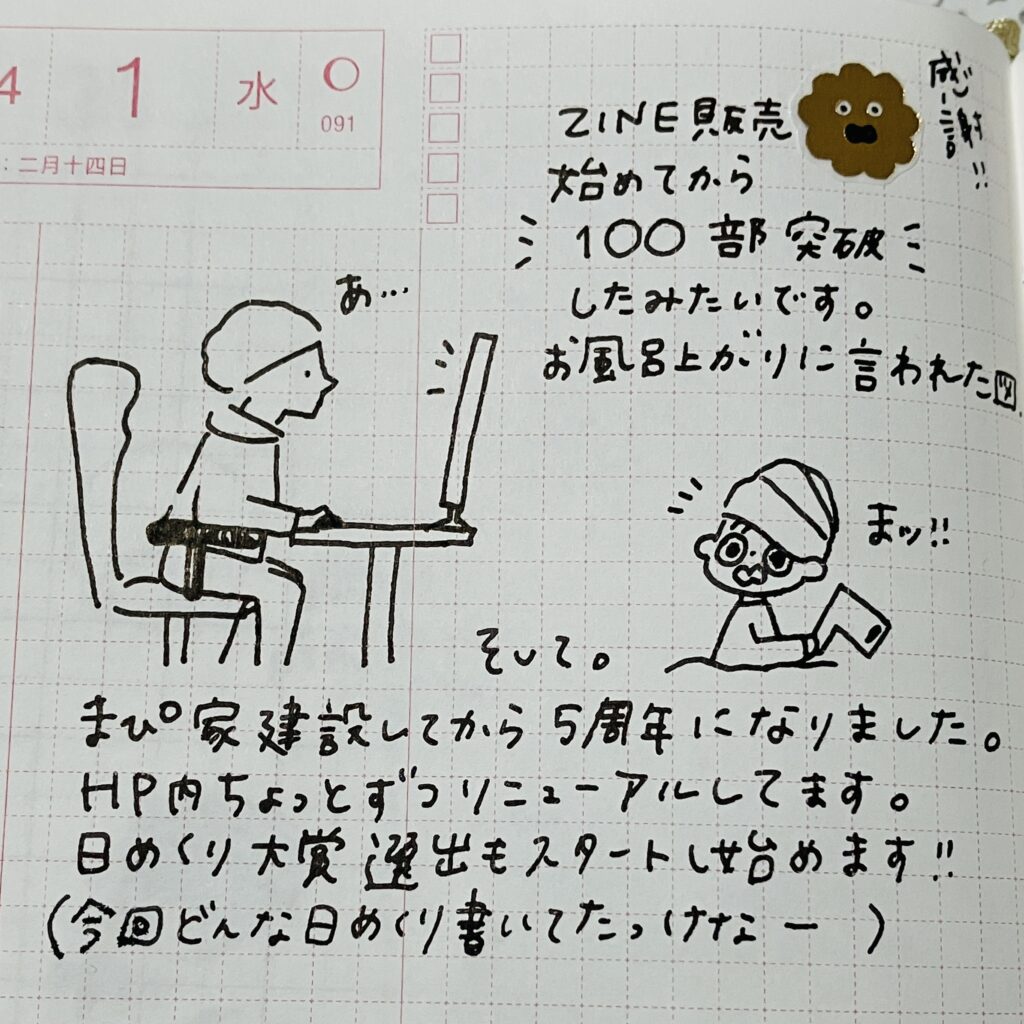 4 1 水
091
：二月十四日
ZINE販売
始めてから
100部突破
したみたいです。
お風呂上がりに言われた図
感謝!!
あ…
まッ!!
そして。
まぴ家建設してから5周年になりました。
HP内ちょっとずつリニューアルしてます。
日めくり大賞選出もスタートし始めます!!
(今回どんな日めくり書いてたっけなー)